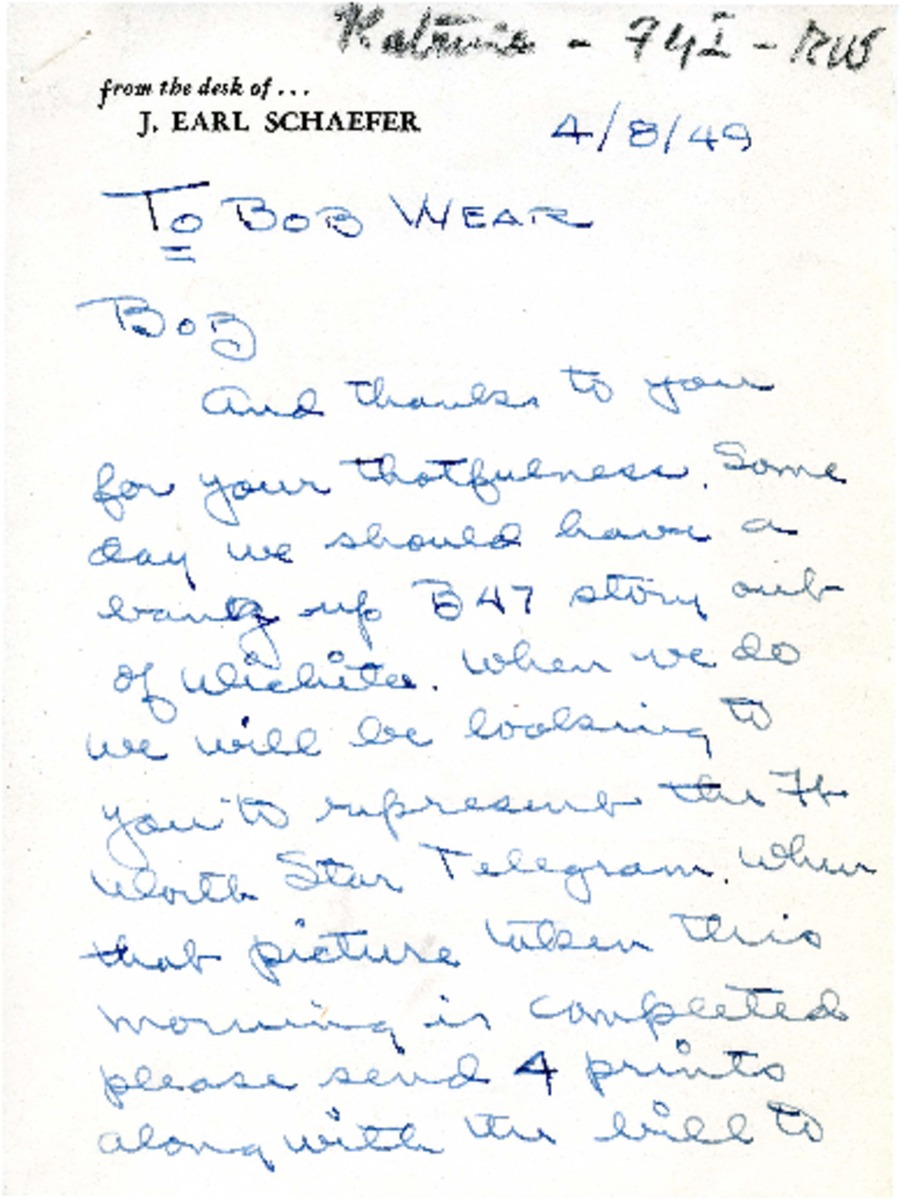 from the desk of...
J. EARL SCHAEFER
4/8/49
To BOB WEAR
BOB
And thanks to you
for your thotfulness. Some
day we should have a
bang up B47 story out
of Wichita. When we do
we will be looking to
you to represent the Ft
Worth Star Telegram. When
that picture taken this
morning is completed
please send 4 prints
along with the bill to